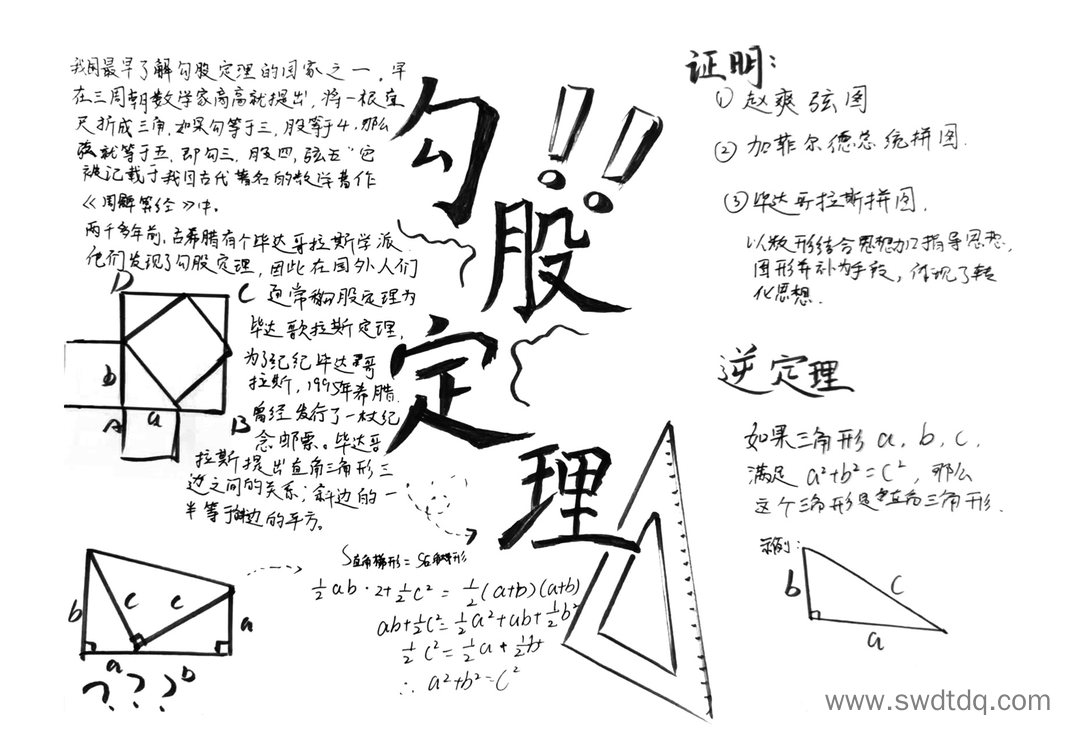 勾股定理!!
我国最早了解勾股定理的国家之一，早
在三周朝数学家商高就提出，将一根直
尺折成三角，如果勾等于三，股等于4，那么
弦就等于五，即勾三，股四，弦五"它
被记载于我国古代著名的数学著作
《周髀算经》中。
两千多年前，古希腊有个毕达哥拉斯学派
他们发现了勾股定理，因此在国外人们
通常称勾股定理为
毕达哥拉斯定理，
为了纪纪毕达哥
拉斯，1995年希腊
曾经发行了一枚纪
念邮票。毕达哥
拉斯提出直角三角形三
边之间的关系；斜边的一
半等于边的平方。
D
C
b
A
a
B
b
c
c
a
a
b
???
S直角梯形=S
½ab·2+½c²=½(a+b)(a+b)
ab+½c²=½a²+ab+½b²
½c²=½a+½b
∴a²+b²=c²
证明：
①赵爽弦图
②加菲尔德总统拼图.
③毕达哥拉斯拼图.
以数形结合思想为指导思想，
图形并补为手段，体现了转
化思想.
逆定理
如果三角形a，b，c，
满足a²+b²=c²，那么
这个三角形是直角三角形.
示例：
b
c
a
www.swdtdq.com